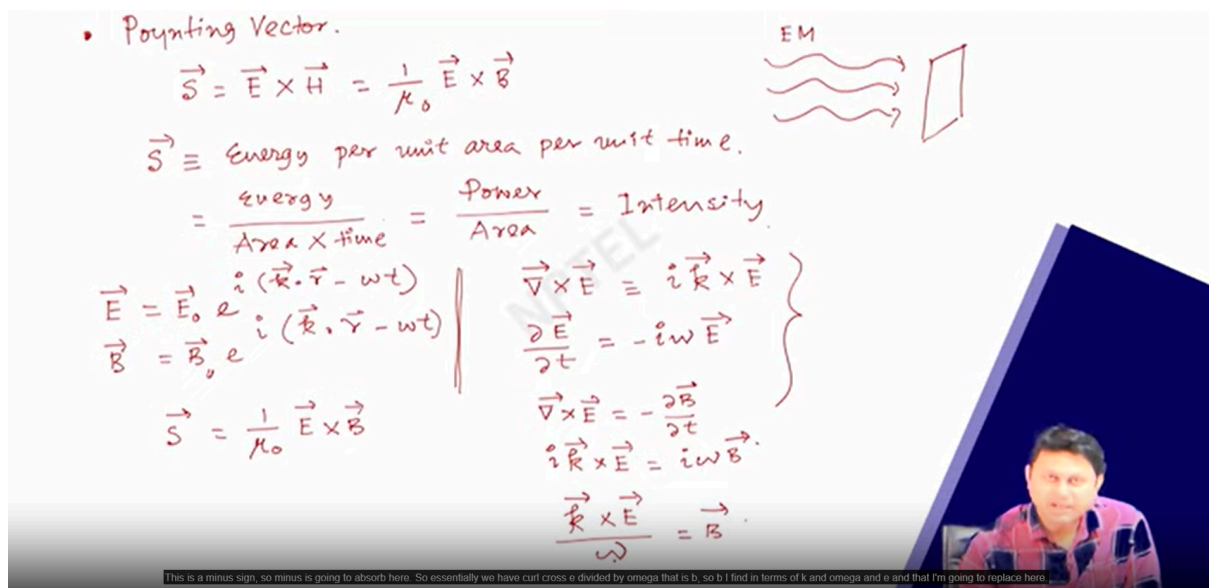 • Poynting Vector.
EM
S⃗ = E⃗ × H⃗ = 1/μ₀ E⃗ × B⃗
S⃗ ≡ Energy per unit area per unit time.
= Energy / Area × time = Power / Area = Intensity
E⃗ = E⃗₀ e^{i(k⃗.r⃗ - ωt)}
B⃗ = B⃗₀ e^{i(k⃗.r⃗ - ωt)}
S⃗ = 1/μ₀ E⃗ × B⃗
∇⃗ × E⃗ = i k⃗ × E⃗
∂E⃗/∂t = - iω E⃗
∇⃗ × E⃗ = - ∂B⃗/∂t
i k⃗ × E⃗ = iω B⃗.
k⃗ × E⃗ / ω = B⃗.
NPTEL
This is a minus sign, so minus is going to absorb here. So essentially we have curl cross e divided by omega that is b, so b I find in terms of k and omega and e and that I'm going to replace here.